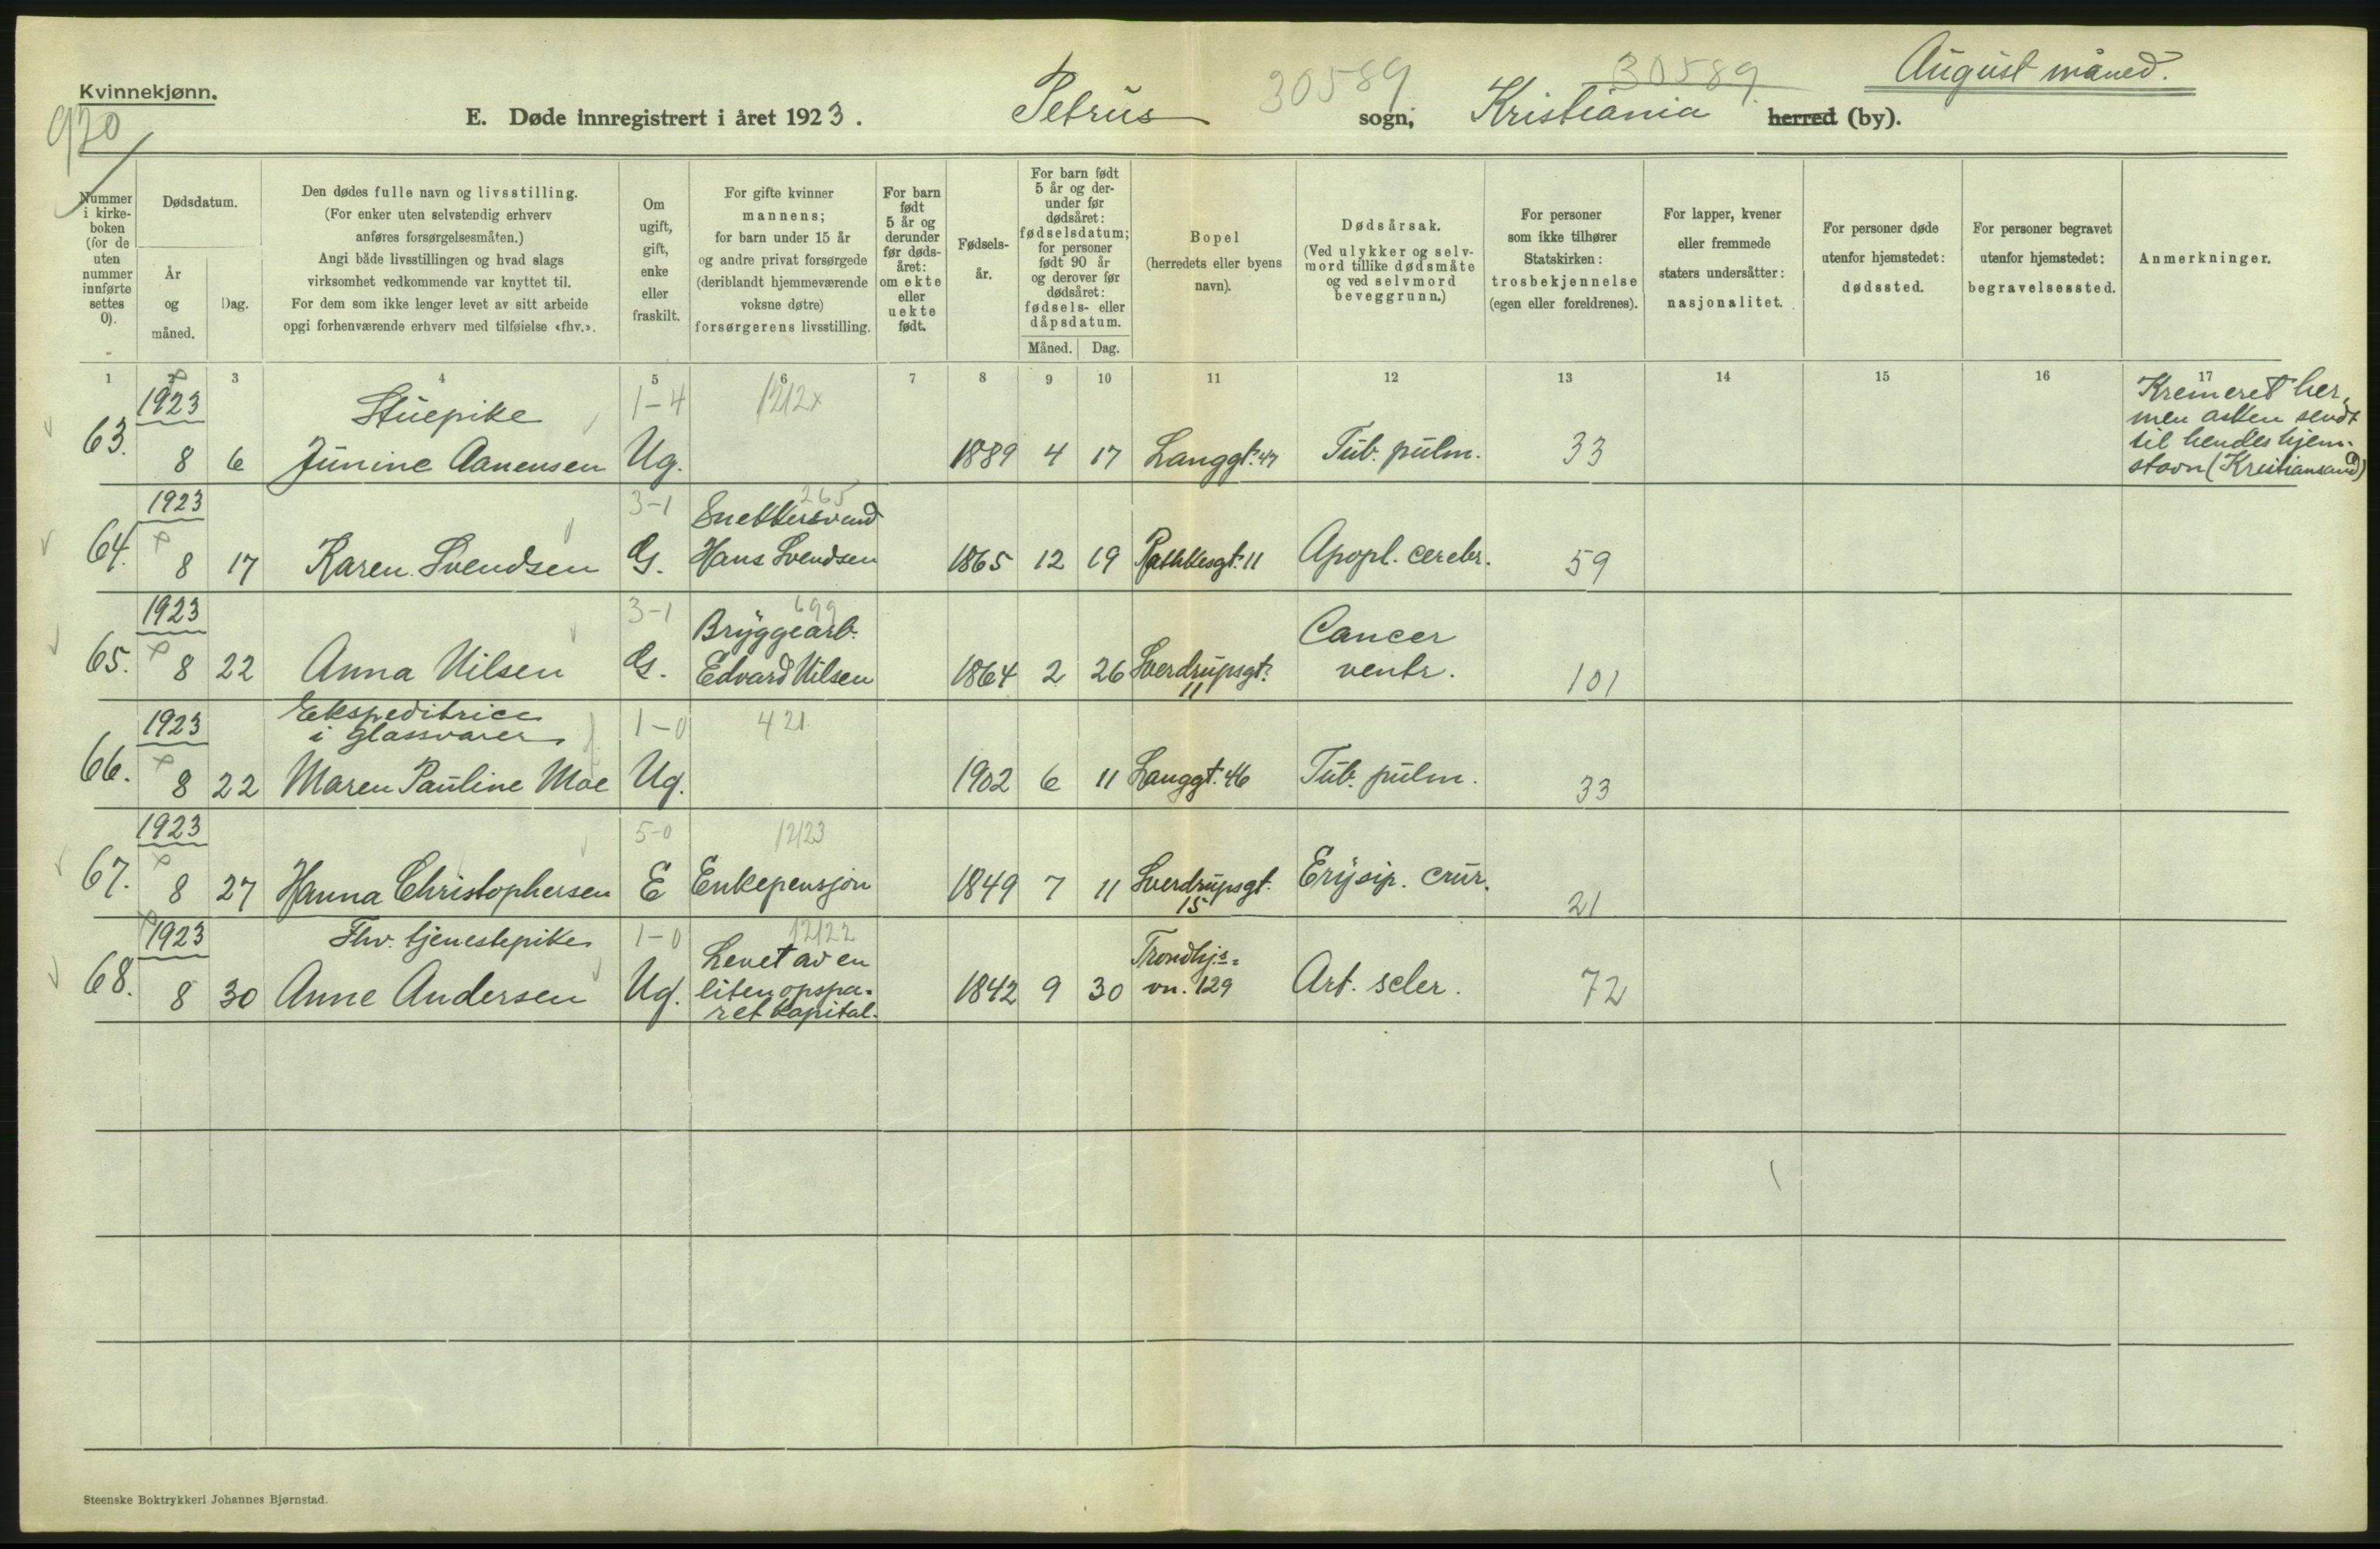 Kvinnekjønn.
920
E. Døde innregistrert i året 1923.
Petrus sogn, Kristiania herred (by).
30589
30589
August måned.
Nummer i kirke-boken (for de uten nummer innførte settes 0).
Dødsdatum.
År og måned.
Dag.
Den dødes fulle navn og livsstilling.
(For enker uten selvstendig erhverv
anføres forsørgelsesmåten.)
Angi både livsstillingen og hvad slags
virksomhet vedkommende var knyttet til.
For dem som ikke lenger levet av sitt arbeide
opgi forhenværende erhverv med tilføielse «fhv.».
Om
ugift,
gift,
enke
eller
fraskilt.
For gifte kvinner
mannens;
for barn under 15 år
og andre privat forsørgede
(deriblandt hjemmeværende
voksne døtre)
forsørgerens livsstilling.
For barn
født
5 år og
derunder
før døds-
året:
om ekte
eller
uekte
født.
Fødsels-
år.
For barn født
5 år og der-
under før
dødsåret:
fødselsdatum;
for personer
født 90 år
og derover før
dødsåret:
fødsels- eller
dåpsdatum.
Måned.
Dag.
Bopel
(herredets eller byens
navn).
Dødsårsak.
(Ved ulykker og selv-
mord tillike dødsmåte
og ved selvmord
beveggrunn.)
For personer
som ikke tilhører
Statskirken:
trosbekjennelse
(egen eller foreldrenes).
For lapper, kvener
eller fremmede
staters undersåtter:
nasjonalitet.
For personer døde
utenfor hjemstedet:
dødssted.
For personer begravet
utenfor hjemstedet:
begravelsessted.
Anmerkninger.
1 2 3 4 5 6 7 8 9 10 11 12 13 14 15 16 17
1923 Stuepike 1-4 1212x
63. 8 6 Junine Aanensen Ug. 1889 4 17 Langgt. 47 Tub. pulm. 33
Kremeret her,
men asken sendt
til hendes hjem-
stavn (Kristiansand)
1923 3-1 265 Snekkersvend
64. 8 17 Karen Svendsen G. Hans Svendsen 1865 12 19 Rathkesgt. 11 Apopl. cerebr. 59
1923 3-1 699 Bryggearb. Cancer
65. 8 22 Anna Nilsen G. Edvard Nilsen 1864 2 26 Sverdrupsgt. 11 ventr. 101
1923 Ekspeditrice
i glassvarer 1-0 421
66. 8 22 Maren Pauline Moe Ug. 1902 6 11 Langgt. 46 Tub. pulm. 33
1923 5-0 12123
67. 8 27 Hanna Christophersen E Enkepensjon 1849 7 11 Sverdrupsgt. 15 Erysip. crur. 21
1923 Fhv. tjenestepike 1-0 12122
68. 8 30 Anne Andersen Ug. Levet av en
liten opspa-
ret kapital. 1842 9 30 Trondhjs=
vn. 129 Art. scler. 72
Steenske Boktrykkeri Johannes Bjørnstad.